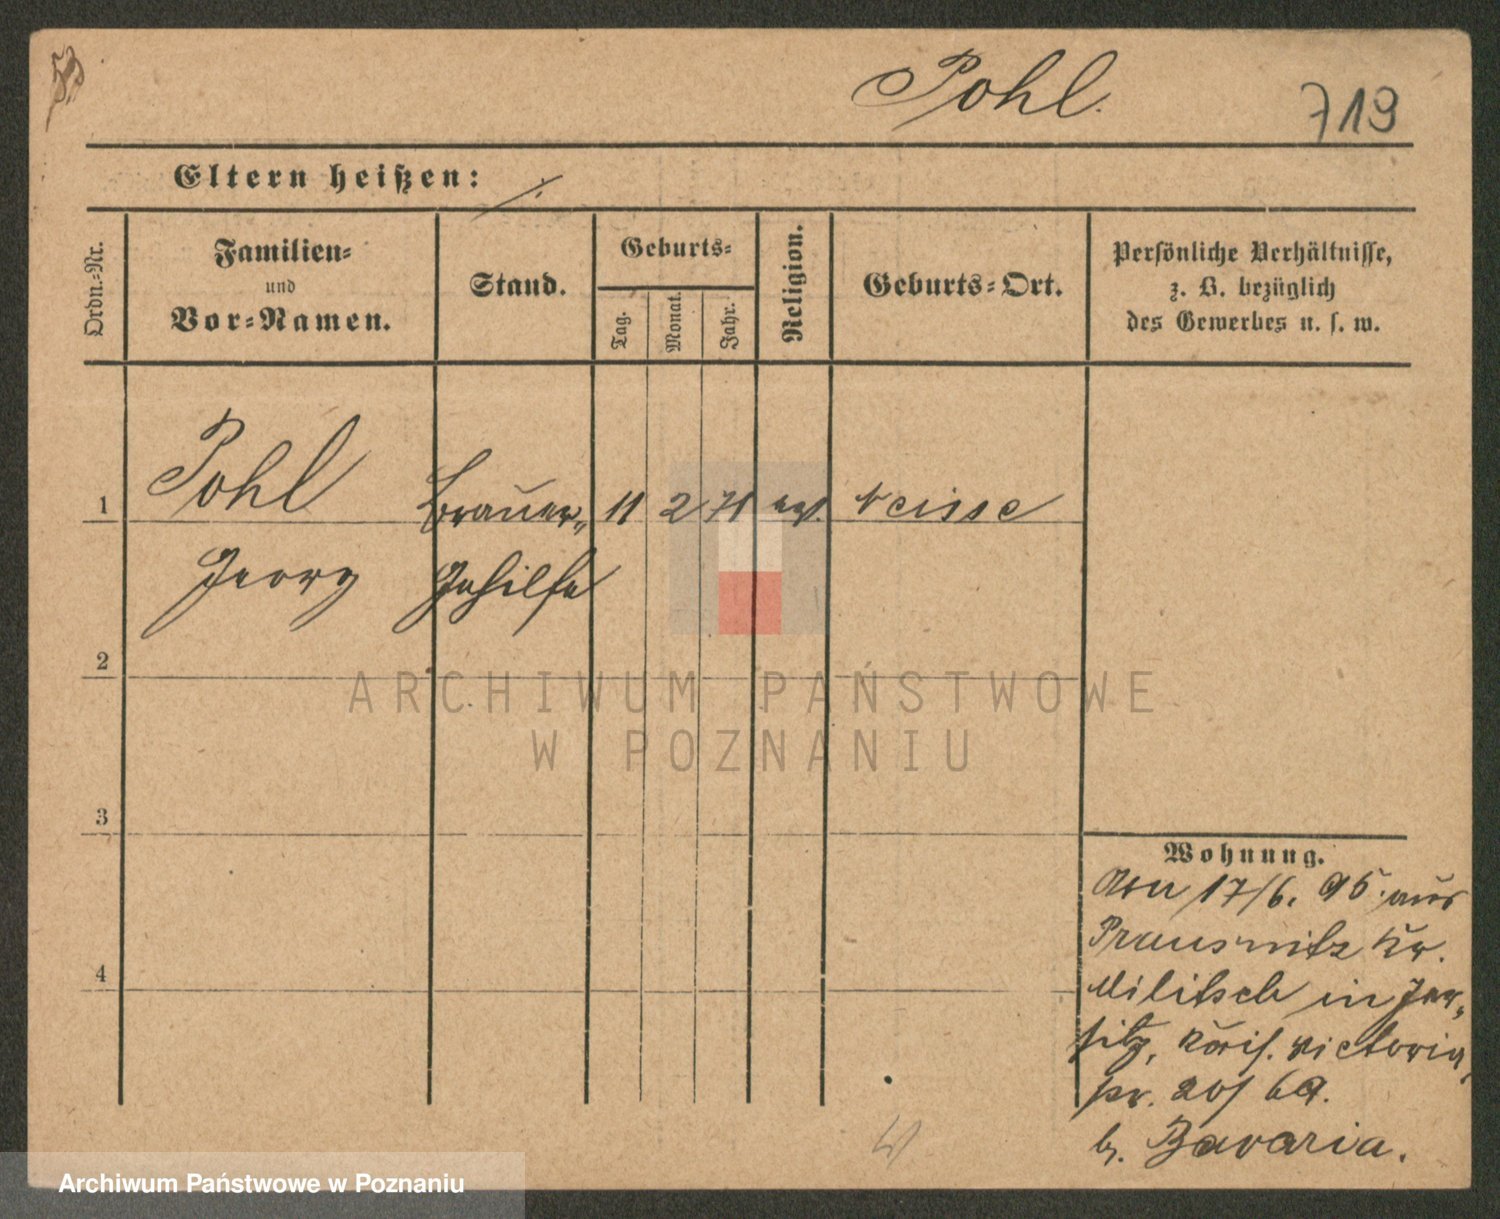 Pohl.
719
Eltern heißen: ./.
Ordn.-Nr.
Familien-
und
Vor-Namen.
Stand.
Geburts-
Tag.
Monat.
Jahr.
Religion.
Geburts-Ort.
Persönliche Verhältnisse,
z. B. bezüglich
des Gewerbes u. s. w.
1 Pohl Brauer- 11 2 71 Neisse
Georg Gehilfe
2
3
4
Wohnung.
Von 17/6. 95. aus
Prausnitz Kr.
Militsch in Jer-
sitz, Kais. Victoria
b. Bavaria.
ARCHIWUM PAŃSTWOWE
W POZNANIU
Archiwum Państwowe w Poznaniu